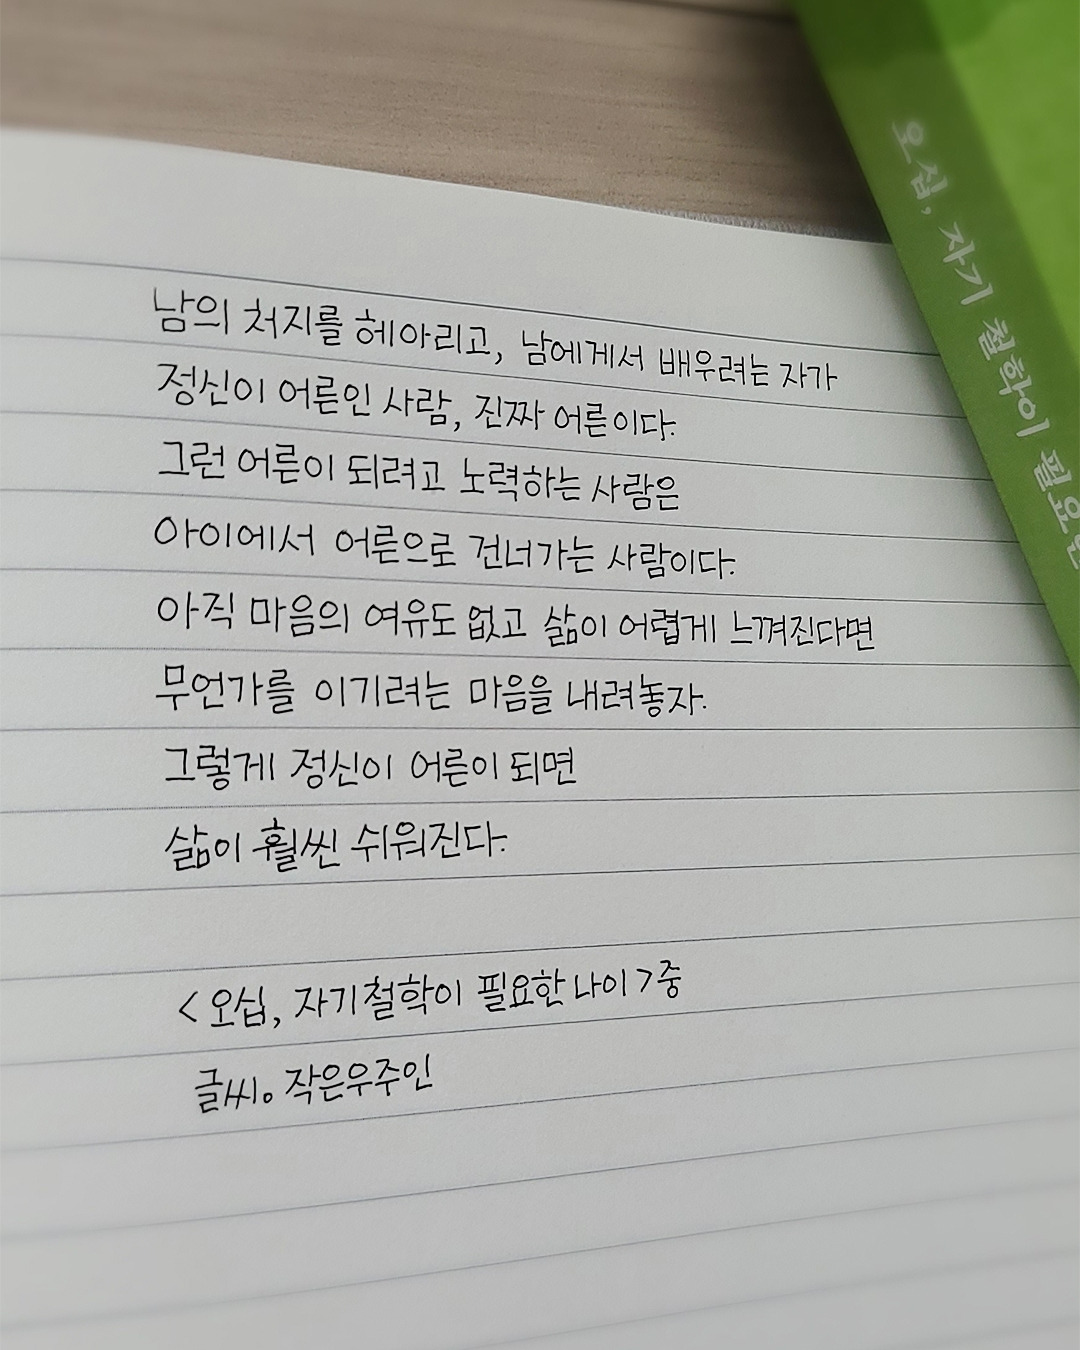 남의 처지를 헤아리고, 남에게서 배우려는 자가
정신이 어른인 사람, 진짜 어른이다.
그런 어른이 되려고 노력하는 사람은
아이에서 어른으로 건너가는 사람이다.
아직 마음의 여유도 없고 삶이 어렵게 느껴진다면
무언가를 이기려는 마음을 내려놓자.
그렇게 정신이 어른이 되면
삶이 훨씬 쉬워진다.
<오십, 자기철학이 필요한 나이>중
글씨。작은우주인
오십, 자기 철학이 필요한